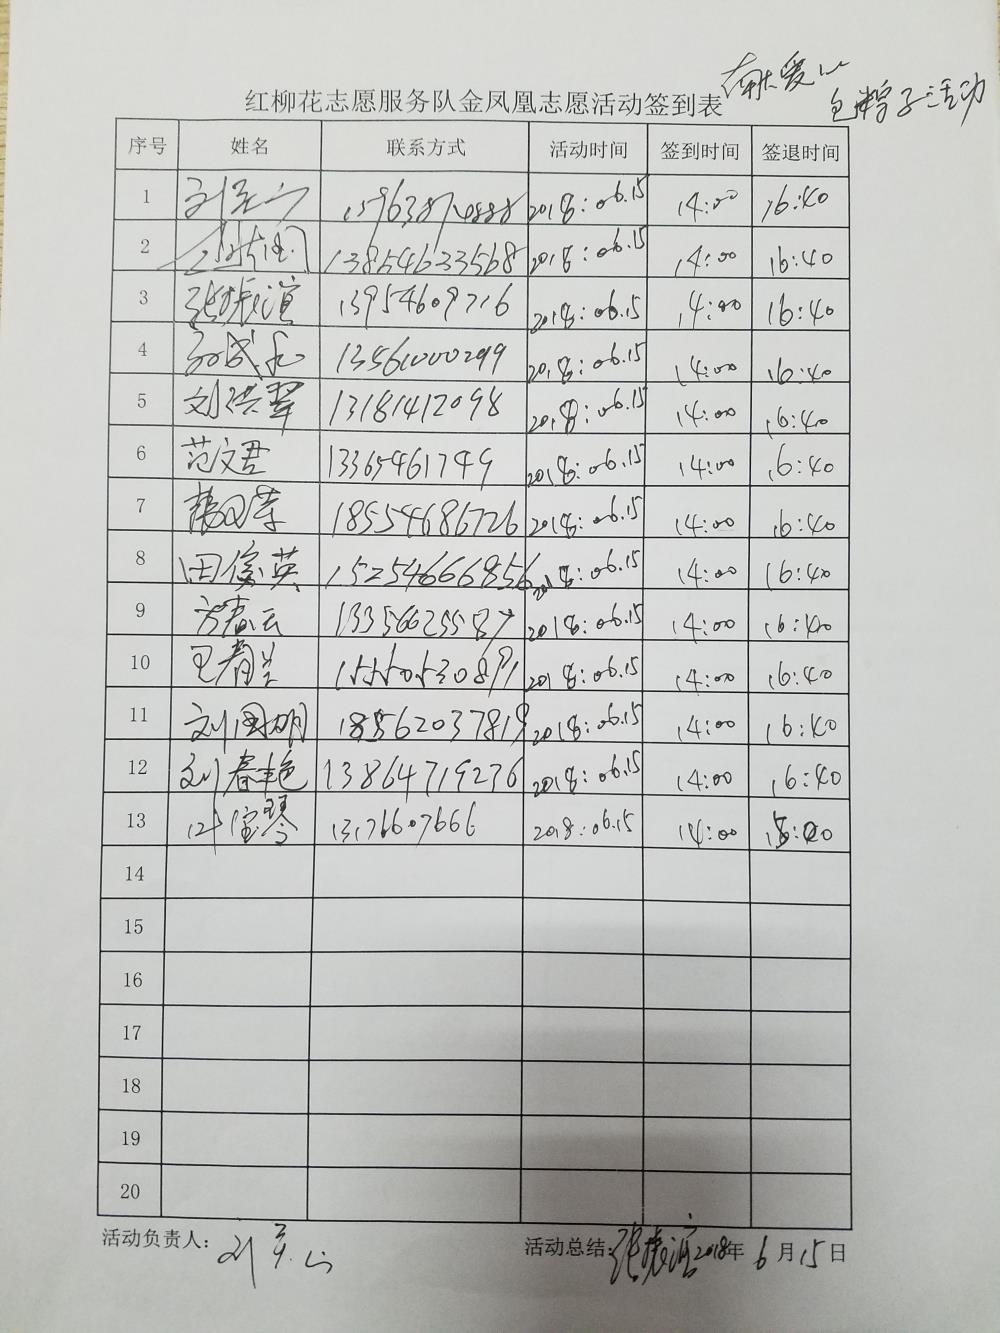 献爱心
包粽子活动
红柳花志愿服务队金凤凰志愿活动签到表
序号 姓名 联系方式 活动时间 签到时间 签退时间
1 2018:06.15 14:00 16:40
2 13854633568 2018:06.15 14:00 16:40
3 张振谊 13954609716 2018:06.15 14:00 16:40
4 13561000299 2018:06.15 14:00 16:40
5 刘洪翠 13181412098 2018:06.15 14:00 16:40
6 范文君 13365461749 2018:06.15 14:00 16:40
7 18554686726 2018:06.15 14:00 16:40
8 田俊英 15254666856 2018:06.15 14:00 16:40
9 方春云 13356625587 2018:06.15 14:00 16:40
10 15550530891 2018:06.15 14:00 16:40
11 刘国明 18562037819 2018:06.15 14:00 16:40
12 刘春艳 13864719236 2018:06.15 14:00 16:40
13 宝琴 13176607666 2018:06.15 14:00
14
15
16
17
18
19
20
活动负责人: 刘 活动总结: 张振谊 2018年6月15日